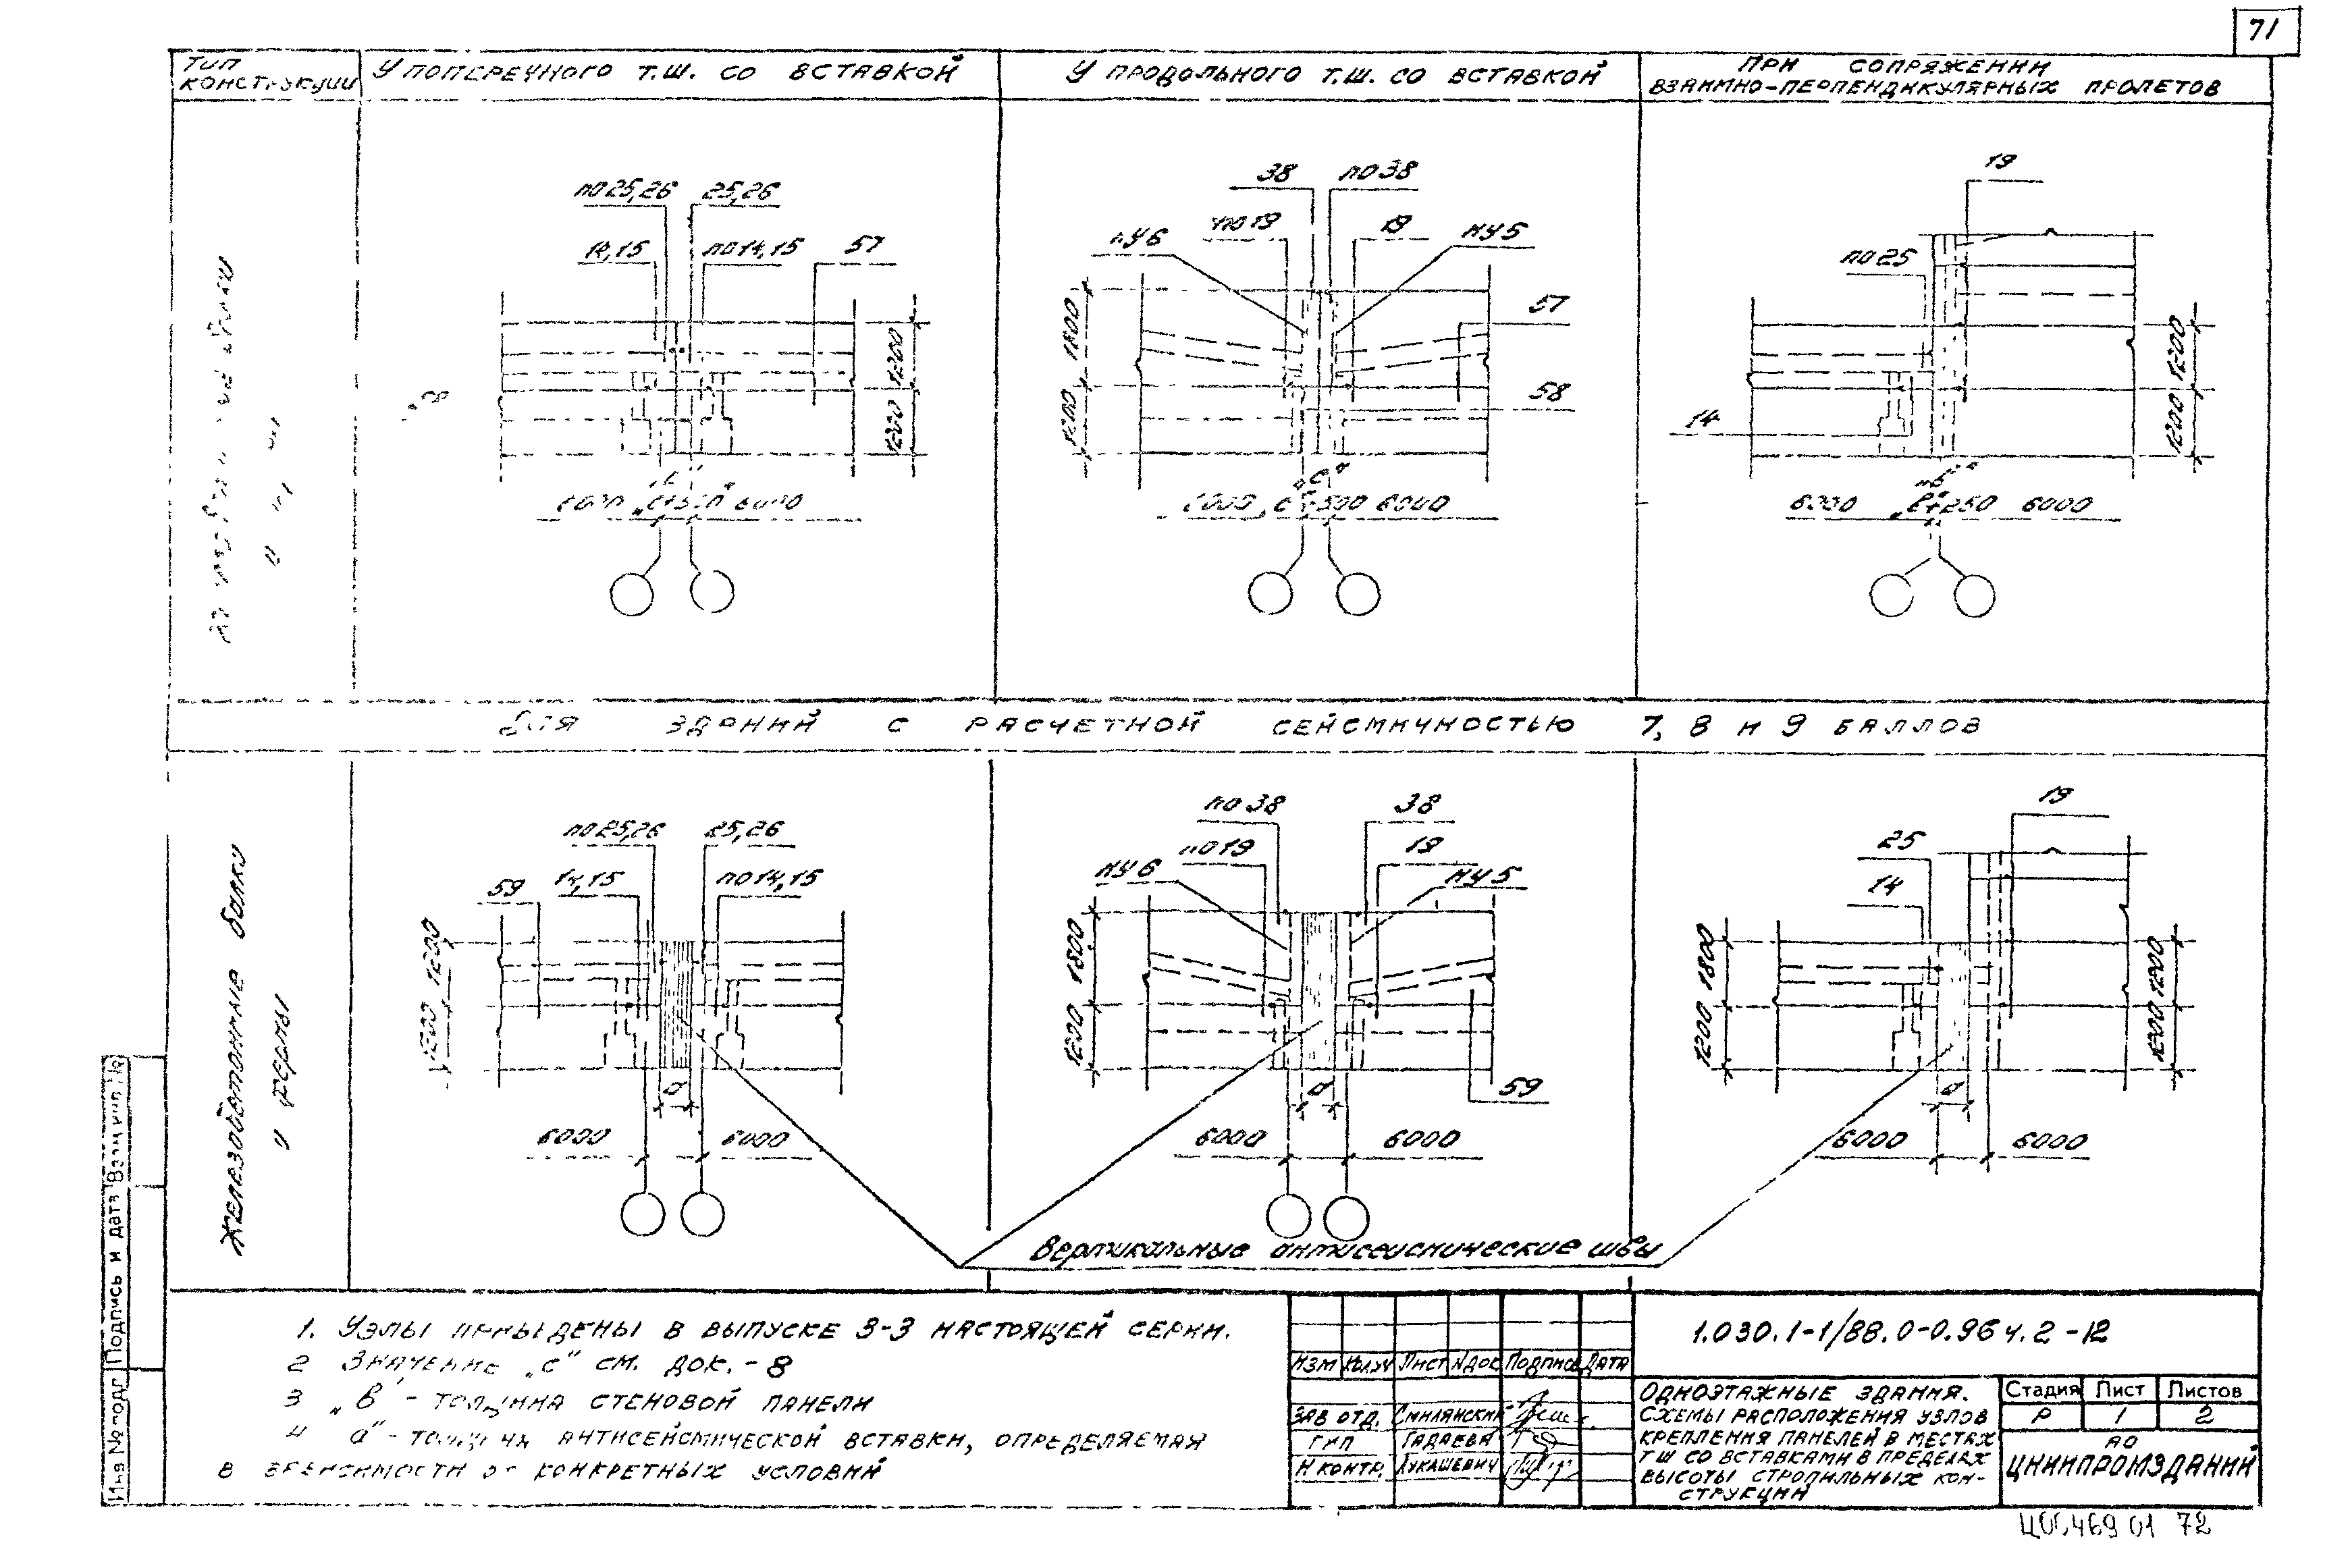 71
Тип
конструкции
У поперечного т.ш. со вставкой
У продольного т.ш. со вставкой
При сопряжении
взаимно-перпендикулярных пролетов
по 25,26
25,26
14,15
по 14,15
57
1200
1200
6000
38
по 38
по 19
19
МУ 5
57
58
1800
1200
"с"
6000
19
по 25
14
1200
1200
"в"
6000
6000
Для зданий с расчетной сейсмичностью 7, 8 и 9 баллов
Железобетонные балки
и фермы
по 25,26
25,26
59
14,15
по 14,15
1200
1200
а
6000
6000
по 38
38
по 19
19
МУ 6
МУ 5
1800
1200
а
59
6000
6000
19
25
14
1800
1200
1200
1200
а
6000
6000
Вертикальные антисейсмические швы
1. Узлы приведены в выпуске 3-3 настоящей серии.
2 Значение "с" см. док. -8
3 "в" - толщина стеновой панели
4 "а" - толщина антисейсмической вставки, определяемая
в зависимости от конкретных условий
1.030.1-1/88.0-0.96 ч.2 -12
Изм Кол.уч Лист № док Подпись Дата
Зав отд. Смилянский
ГИП Гадаева
Н контр. Лукашевич
Одноэтажные здания.
Схемы расположения узлов
крепления панелей в местах
тш со вставками в пределах
высоты стропильных кон-
струкций
Стадия Лист Листов
Р 1 2
АО
ЦНИИПРОМЗДАНИЙ
Инв № подл
Подпись и дата
Взам инв №
72